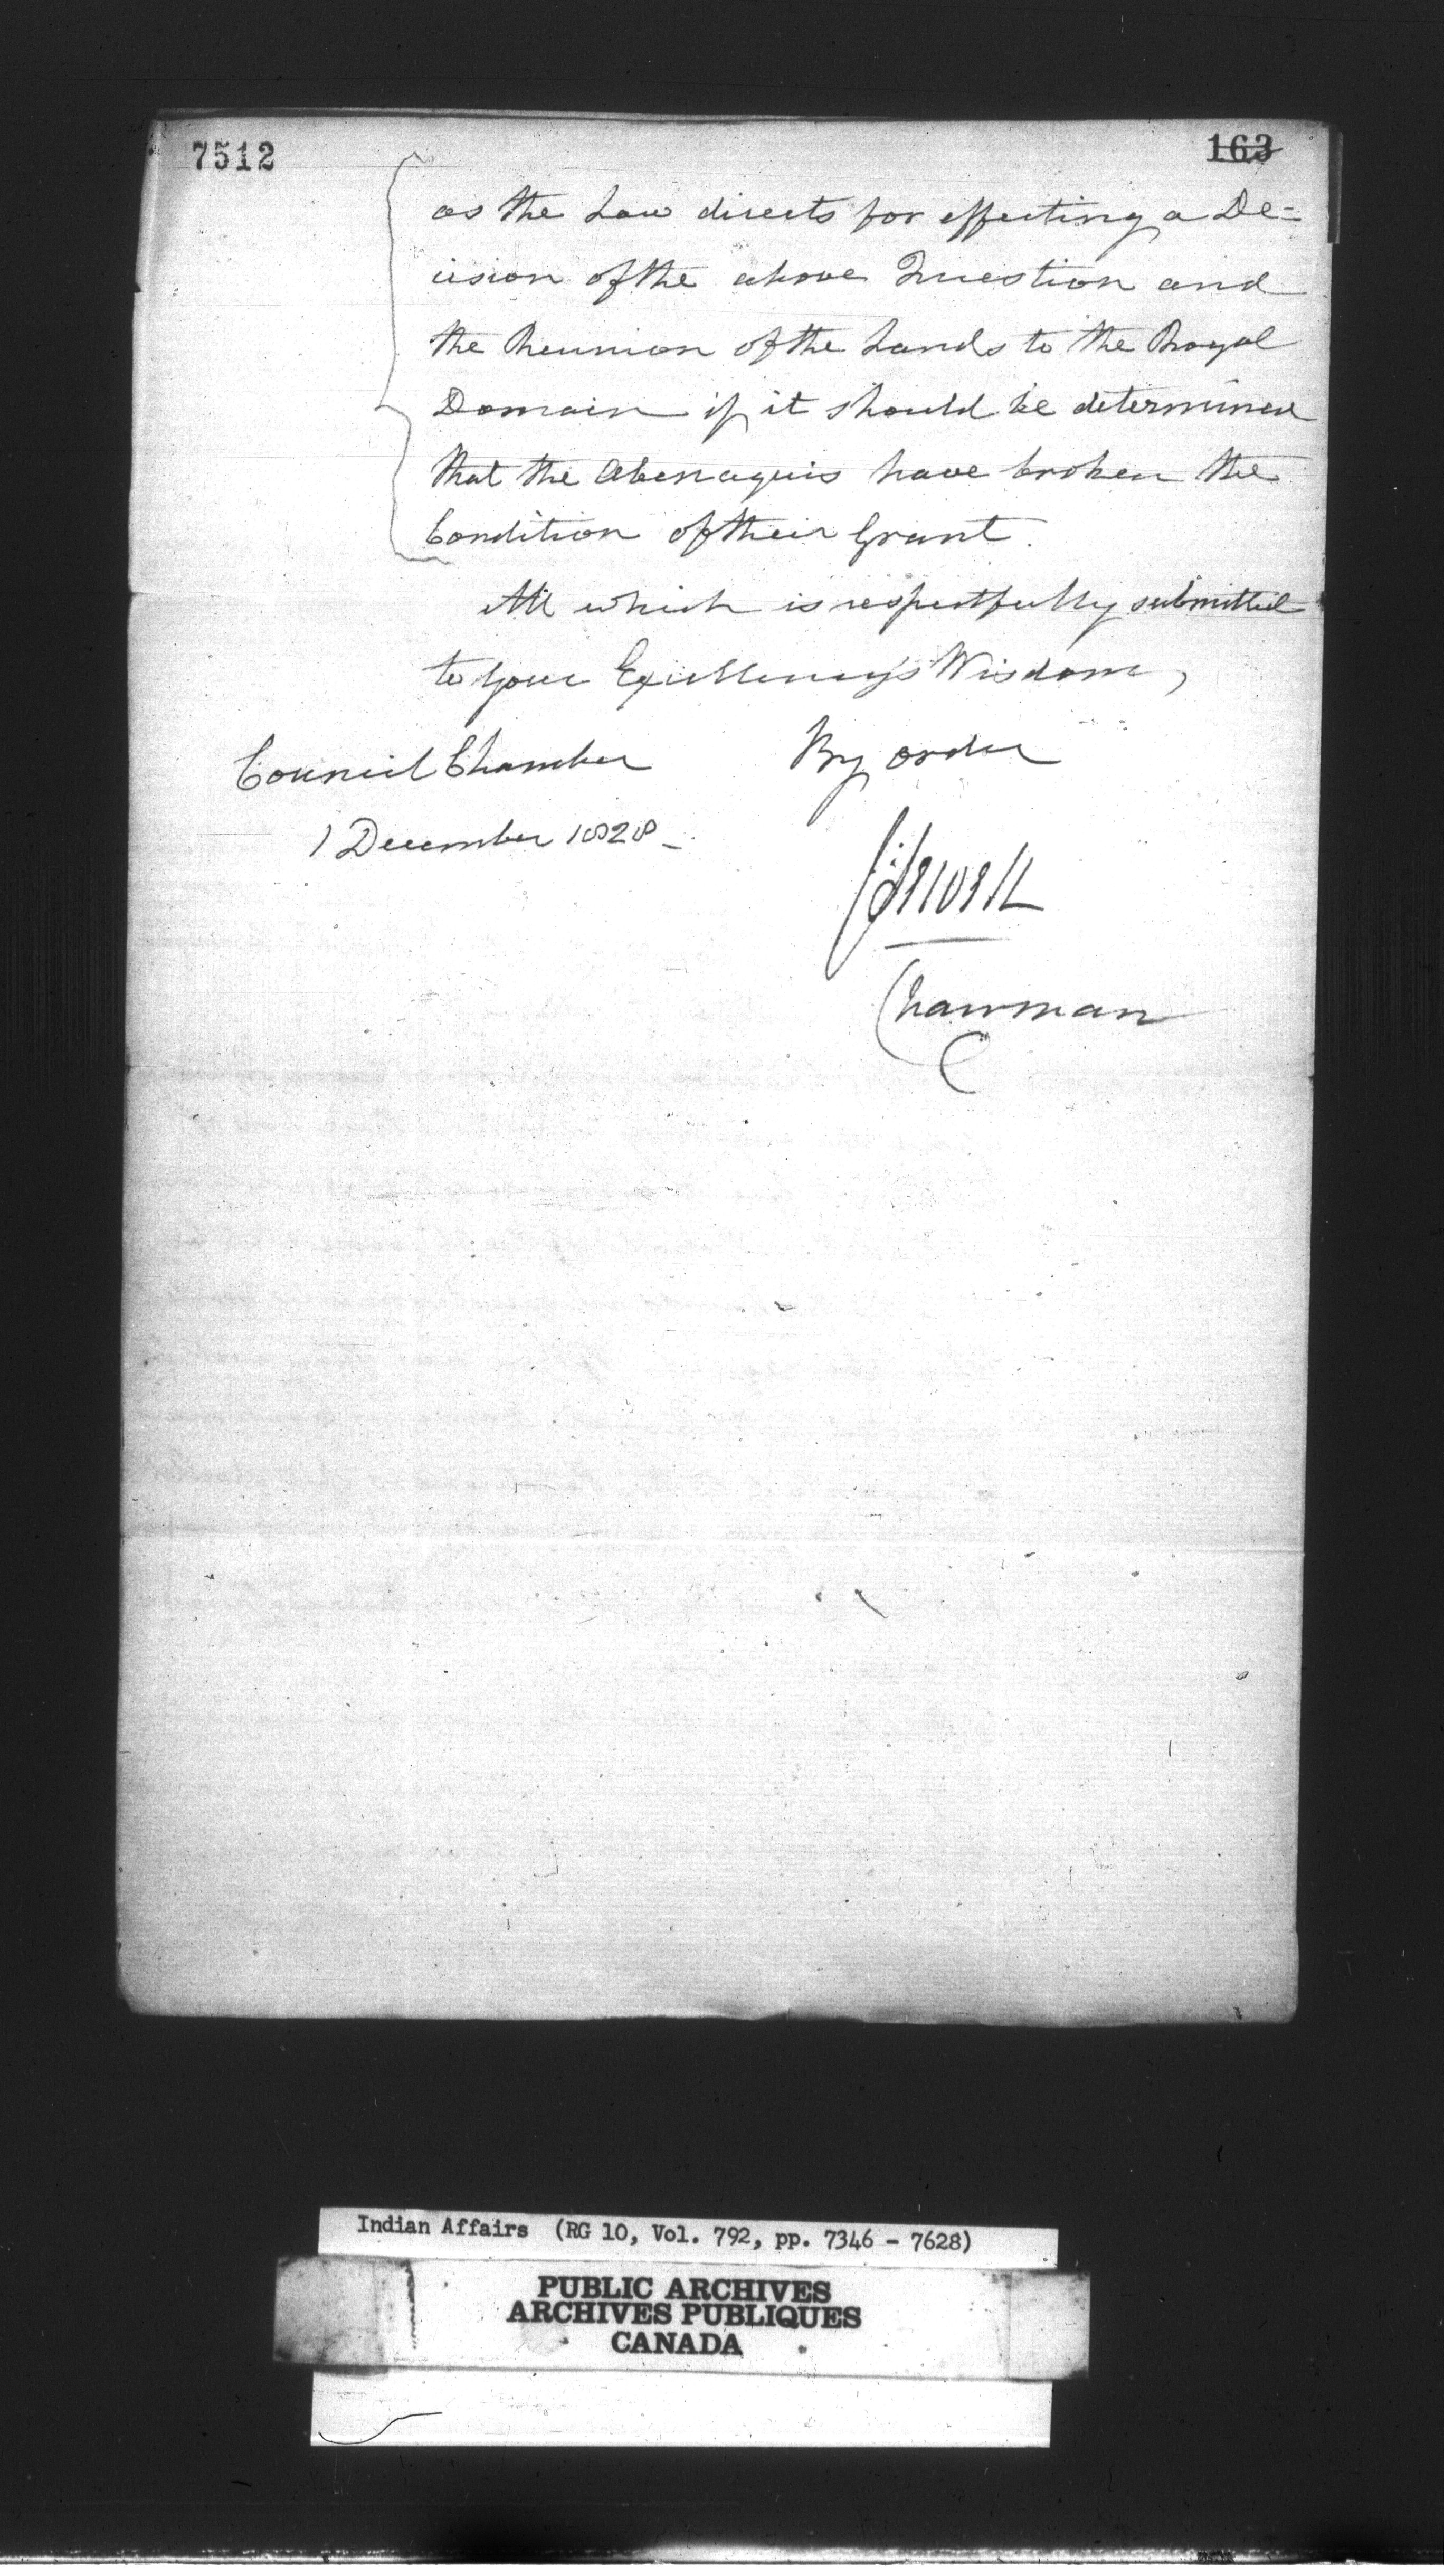 7512
163
as the Law directs for effecting a De=
cision of the above Question and
the Reunion of the Lands to the Royal
Domain if it should be determined
that the Abenaquis have broken the
Condition of their Grant.
All which is respectfully submitted
to Your Excellency's Wisdom,
Council Chamber
By order
1 December 1828_
J Sewell
Chairman
Indian Affairs (RG 10, Vol. 792, pp. 7346 - 7628)
PUBLIC ARCHIVES
ARCHIVES PUBLIQUES
CANADA